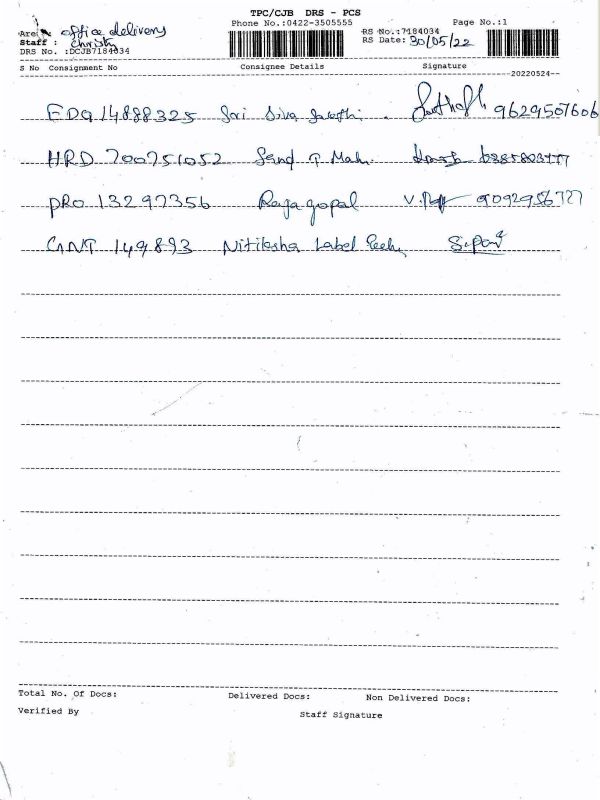 TPC/CJB DRS - PCS
Phone No.:0422-3505555 Page No.:1
Area office delivery RS No.:7184034
Staff : Christy RS Date: 30/05/22
DRS No. :DCJB7184034
S No Consignment No Consignee Details Signature
20220524
EDQ 14888325 Sri Siva 9629507606
HRD 700751052
PRO 13297356 Rajagopal 9092956727
CANT 149893 Nitiksha Label
Total No. Of Docs: Delivered Docs: Non Delivered Docs:
Verified By Staff Signature